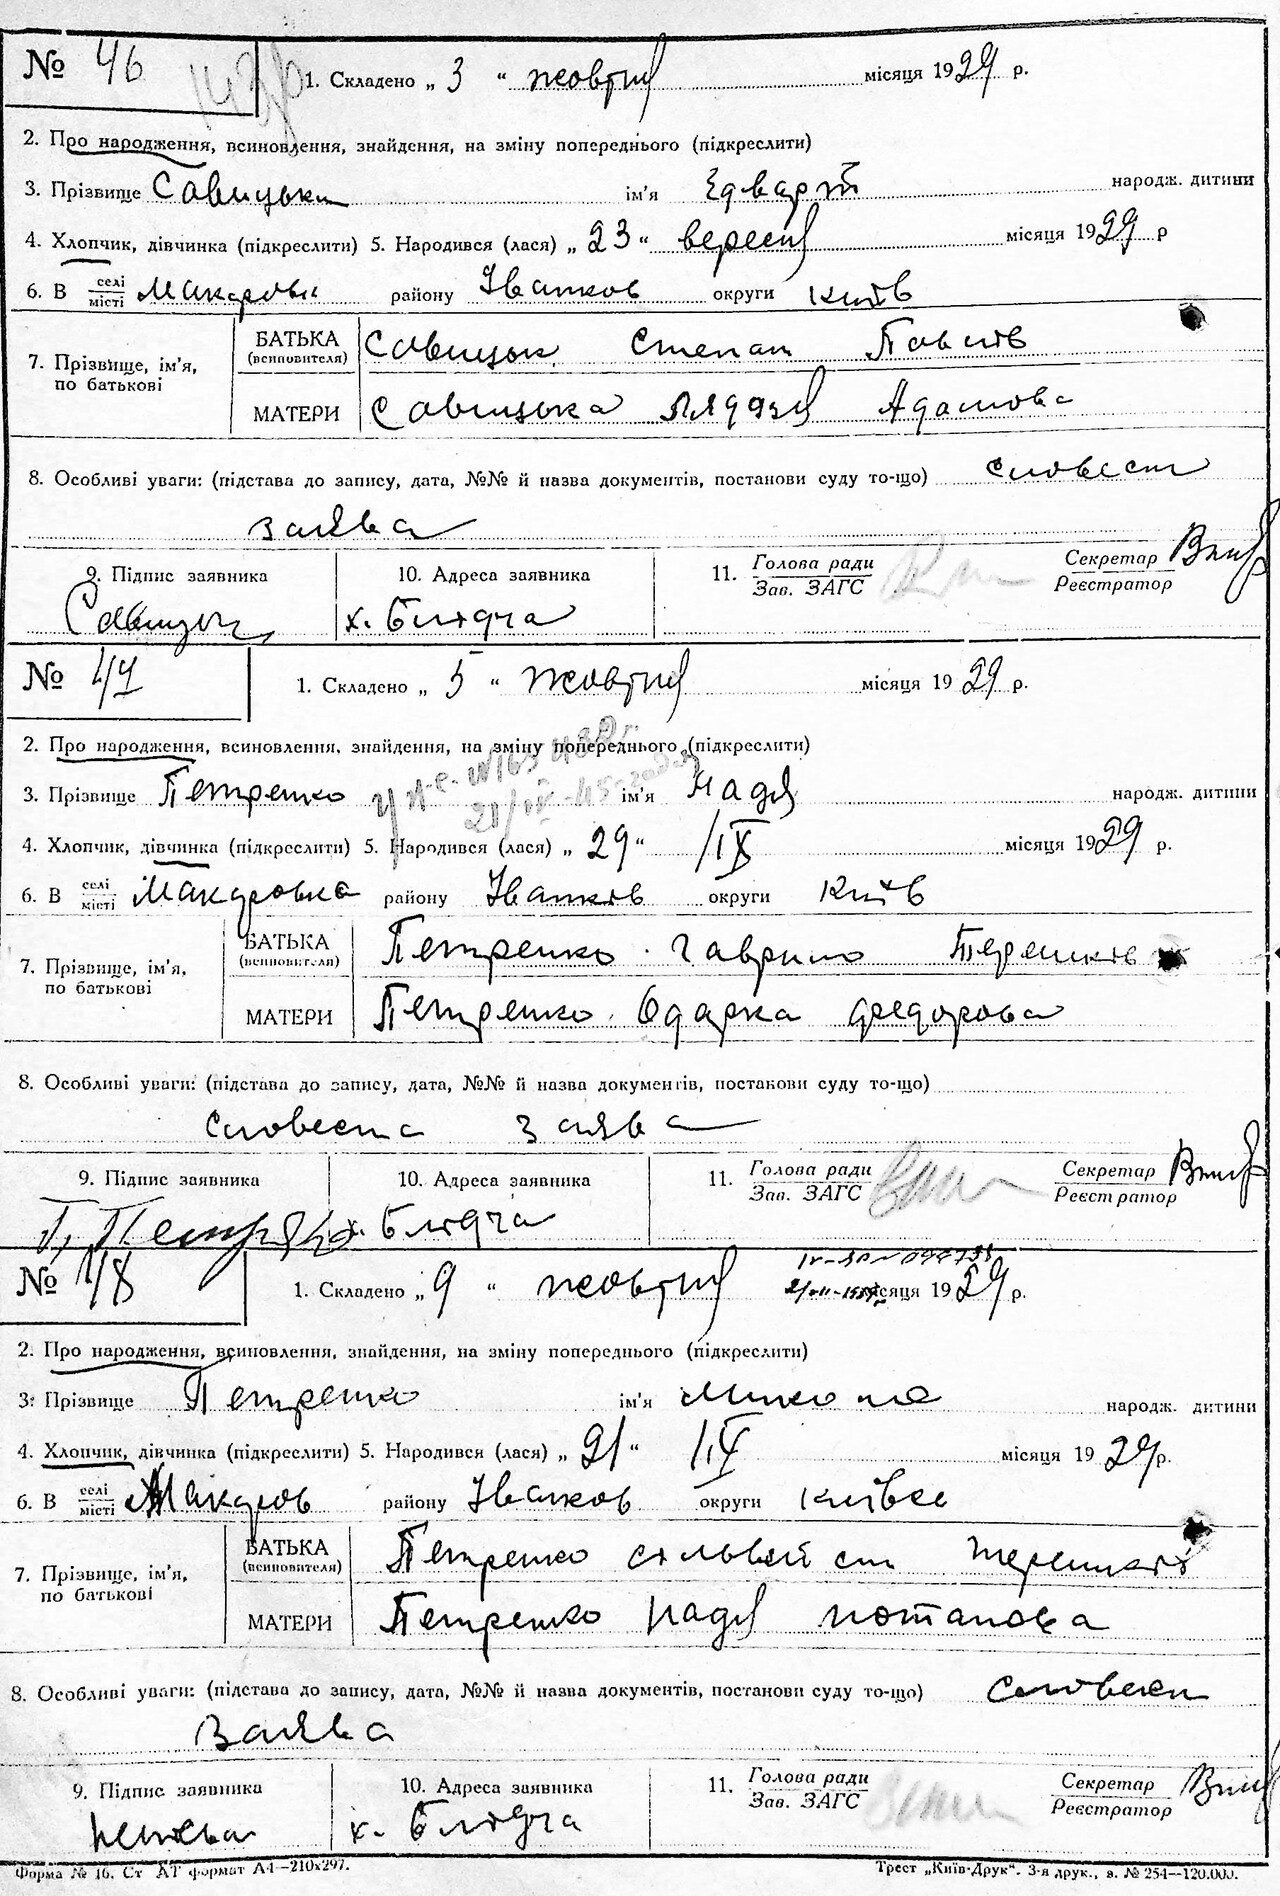 № 46 1. Складено „ 3 “ жовтня місяця 1929 р.
2. Про народження, всиновлення, знайдення, на зміну попереднього (підкреслити)
3. Прізвище Савицьки ім'я Едварт народж. дитини
4. Хлопчик, дівчинка (підкреслити) 5. Народився (лася) „ 23 “ вересня місяця 1929 р
6. В селі/місті Макаровка району Іванков округи Київ
7. Прізвище, ім'я, по батькові
БАТЬКА (всиновителя) Савицьки Степан Павлів
МАТЕРИ Савицька Адамова
8. Особливі уваги: (підстава до запису, дата, №№ й назва документів, постанови суду то-що) словесна
заява
9. Підпис заявника 10. Адреса заявника 11. Голова ради / Зав. ЗАГС Секретар / Реєстратор
х. Блідча
№ 47 1. Складено „ 5 “ жовтня місяця 1929 р.
2. Про народження, всиновлення, знайдення, на зміну попереднього (підкреслити)
3. Прізвище Петренко ім'я Надя народж. дитини
4. Хлопчик, дівчинка (підкреслити) 5. Народився (лася) „ 29 “ /IX місяця 1929 р.
6. В селі/місті Макаровка району Іванків округи Київ
7. Прізвище, ім'я, по батькові
БАТЬКА (всиновителя) Петренко Гаврило Терешків
МАТЕРИ Петренко Одарка Федорова
8. Особливі уваги: (підстава до запису, дата, №№ й назва документів, постанови суду то-що)
словесна заява
9. Підпис заявника 10. Адреса заявника 11. Голова ради / Зав. ЗАГС Секретар / Реєстратор
Г. Петренко х. Блідча
№ 48 1. Складено „ 9 “ жовтня місяця 1929 р.
2. Про народження, всиновлення, знайдення, на зміну попереднього (підкреслити)
3. Прізвище Петренко ім'я Микола народж. дитини
4. Хлопчик, дівчинка (підкреслити) 5. Народився (лася) „ 21 “ /IX місяця 1929 р.
6. В селі/місті Макаров району Іванков округи Київсь
7. Прізвище, ім'я, по батькові
БАТЬКА (всиновителя) Петренко
МАТЕРИ Петренко Надя Потапова
8. Особливі уваги: (підстава до запису, дата, №№ й назва документів, постанови суду то-що) словесн
заява
9. Підпис заявника 10. Адреса заявника 11. Голова ради / Зав. ЗАГС Секретар / Реєстратор
х. Блідча
Форма № 16. Ст АТ формат А4—210х297. Трест „Київ-Друк“. 3-я друк., з. № 254—120.000.